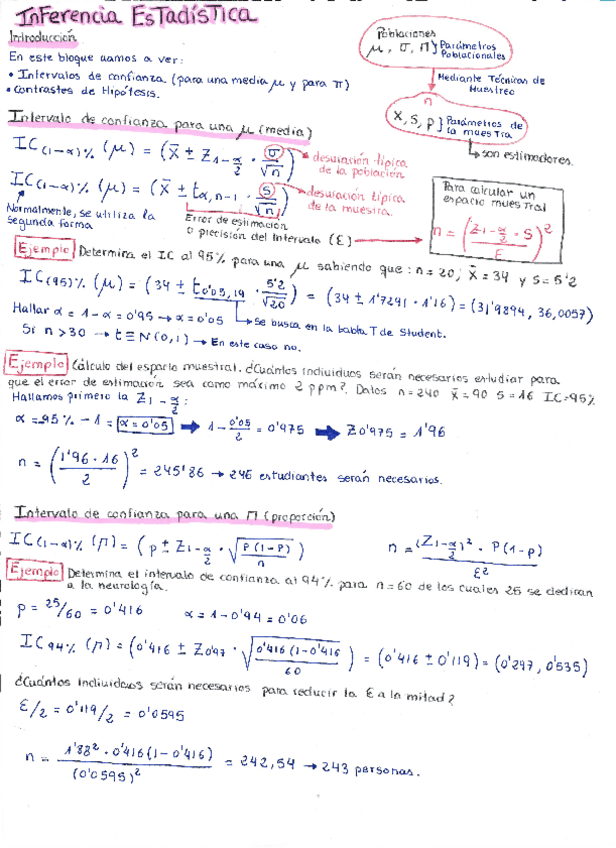 Inferencia Estadística
Introducción
En este bloque vamos a ver:
• Intervalos de confianza (para una media μ y para π)
• Contrastes de Hipótesis.
Poblaciones
μ, σ, Π } Parámetros Poblacionales
Mediante Técnicas de Muestreo
n
X, S, p } Parámetros de la muestra
↳ son estimadores.
Intervalo de confianza para una μ (media)
IC(1-α)% (μ) = (x̄ ± Z1-α/2 · σ/√n)
→ desviación típica de la población
IC(1-α)% (μ) = (x̄ ± tα,n-1 · S/√n)
→ desviación típica de la muestra.
Normalmente, se utiliza la segunda forma
Error de estimación o precisión del Intervalo (ε)
Para calcular un espacio muestral
n = (Z1-α/2 · S / ε)²
Ejemplo Determina el IC al 95% para una μ sabiendo que: n = 20, x̄ = 34 y S = 5'2
IC(95)% (μ) = (34 ± t0'05,19 · 5'2/√20) = (34 ± 1'7291 · 1'16) = (31'9894, 36,0057)
Hallar α = 1 - α = 0'95 → α = 0'05
↳ Se busca en la tabla T de Student.
Si n > 30 → t ≡ N(0,1) → En este caso no.
Ejemplo Cálculo del espacio muestral. ¿Cuántos individuos serán necesarios estudiar para
que el error de estimación sea como máximo 2 ppm?. Datos n = 240 x̄ = 90 S = 16 IC = 95%
Hallamos primero la Z1-α/2 :
α = 95% - 1 = α = 0'05 → 1 - 0'05/2 = 0'975 → Z0'975 = 1'96
n = (1'96 · 16 / 2)² = 245'86 → 246 estudiantes serán necesarios.
Intervalo de confianza para una Π (proporción)
IC(1-α)% (Π) = (p ± Z1-α/2 · √(p(1-p)/n))
n = (Z1-α/2)² · P(1-p) / ε²
Ejemplo Determina el intervalo de confianza al 94% para n = 60 de los cuales 25 se dedican
a la neurología.
p = 25/60 = 0'416 α = 1 - 0'94 = 0'06
IC94% (Π) = (0'416 ± Z0'97 · √(0'416(1-0'416)/60) = (0'416 ± 0'119) = (0'297, 0'535)
¿Cuántos individuos serán necesarios para reducir la ε a la mitad?
ε/2 = 0'119/2 = 0'0595
n = 1'88² · 0'416(1-0'416) / (0'0595)² = 242,54 → 243 personas.